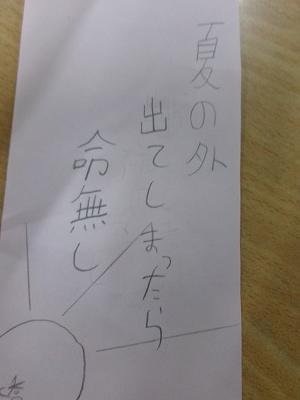 夏の外
出てしまったら
命無し